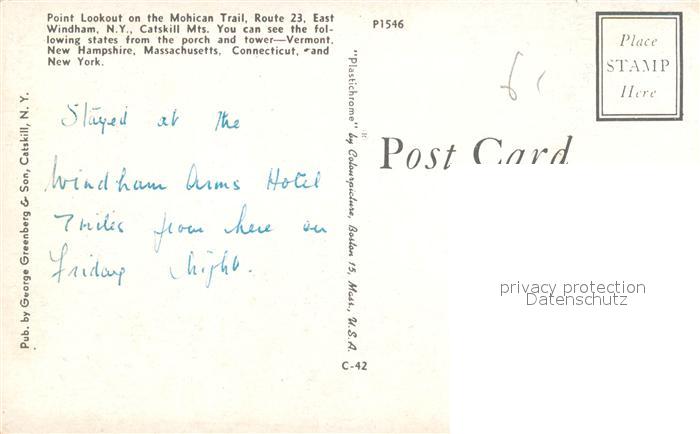 Point Lookout on the Mohican Trail, Route 23, East
Windham, N.Y., Catskill Mts. You can see the fol-
lowing states from the porch and tower—Vermont,
New Hampshire, Massachusetts, Connecticut, and
New York.
P1546
Place
STAMP
Here
Post Card
Stayed at the
Windham Arms Hotel
7 miles from here on
Friday night.
Pub. by George Greenberg & Son, Catskill, N. Y.
"Plastichrome" by Colourpicture, Boston 15, Mass., U.S.A.
C-42
privacy protection
Datenschutz